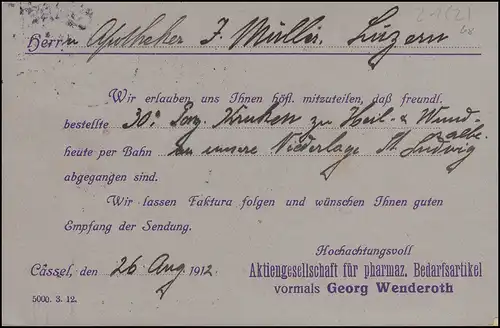 Herrn Apotheker J. Müller, Luzern
Wir erlauben uns Ihnen höfl. mitzuteilen, daß freundl.
bestellte 30: Porz. Kruken zu Heil- & Wund-
salbe
heute per Bahn an unsere Niederlage St. Ludwig
abgegangen sind.
Wir lassen Faktura folgen und wünschen Ihnen guten
Empfang der Sendung.
Hochachtungsvoll
Cassel, den 26 Aug 1912. Aktiengesellschaft für pharmaz. Bedarfsartikel
vormals Georg Wenderoth
5000. 3. 12.